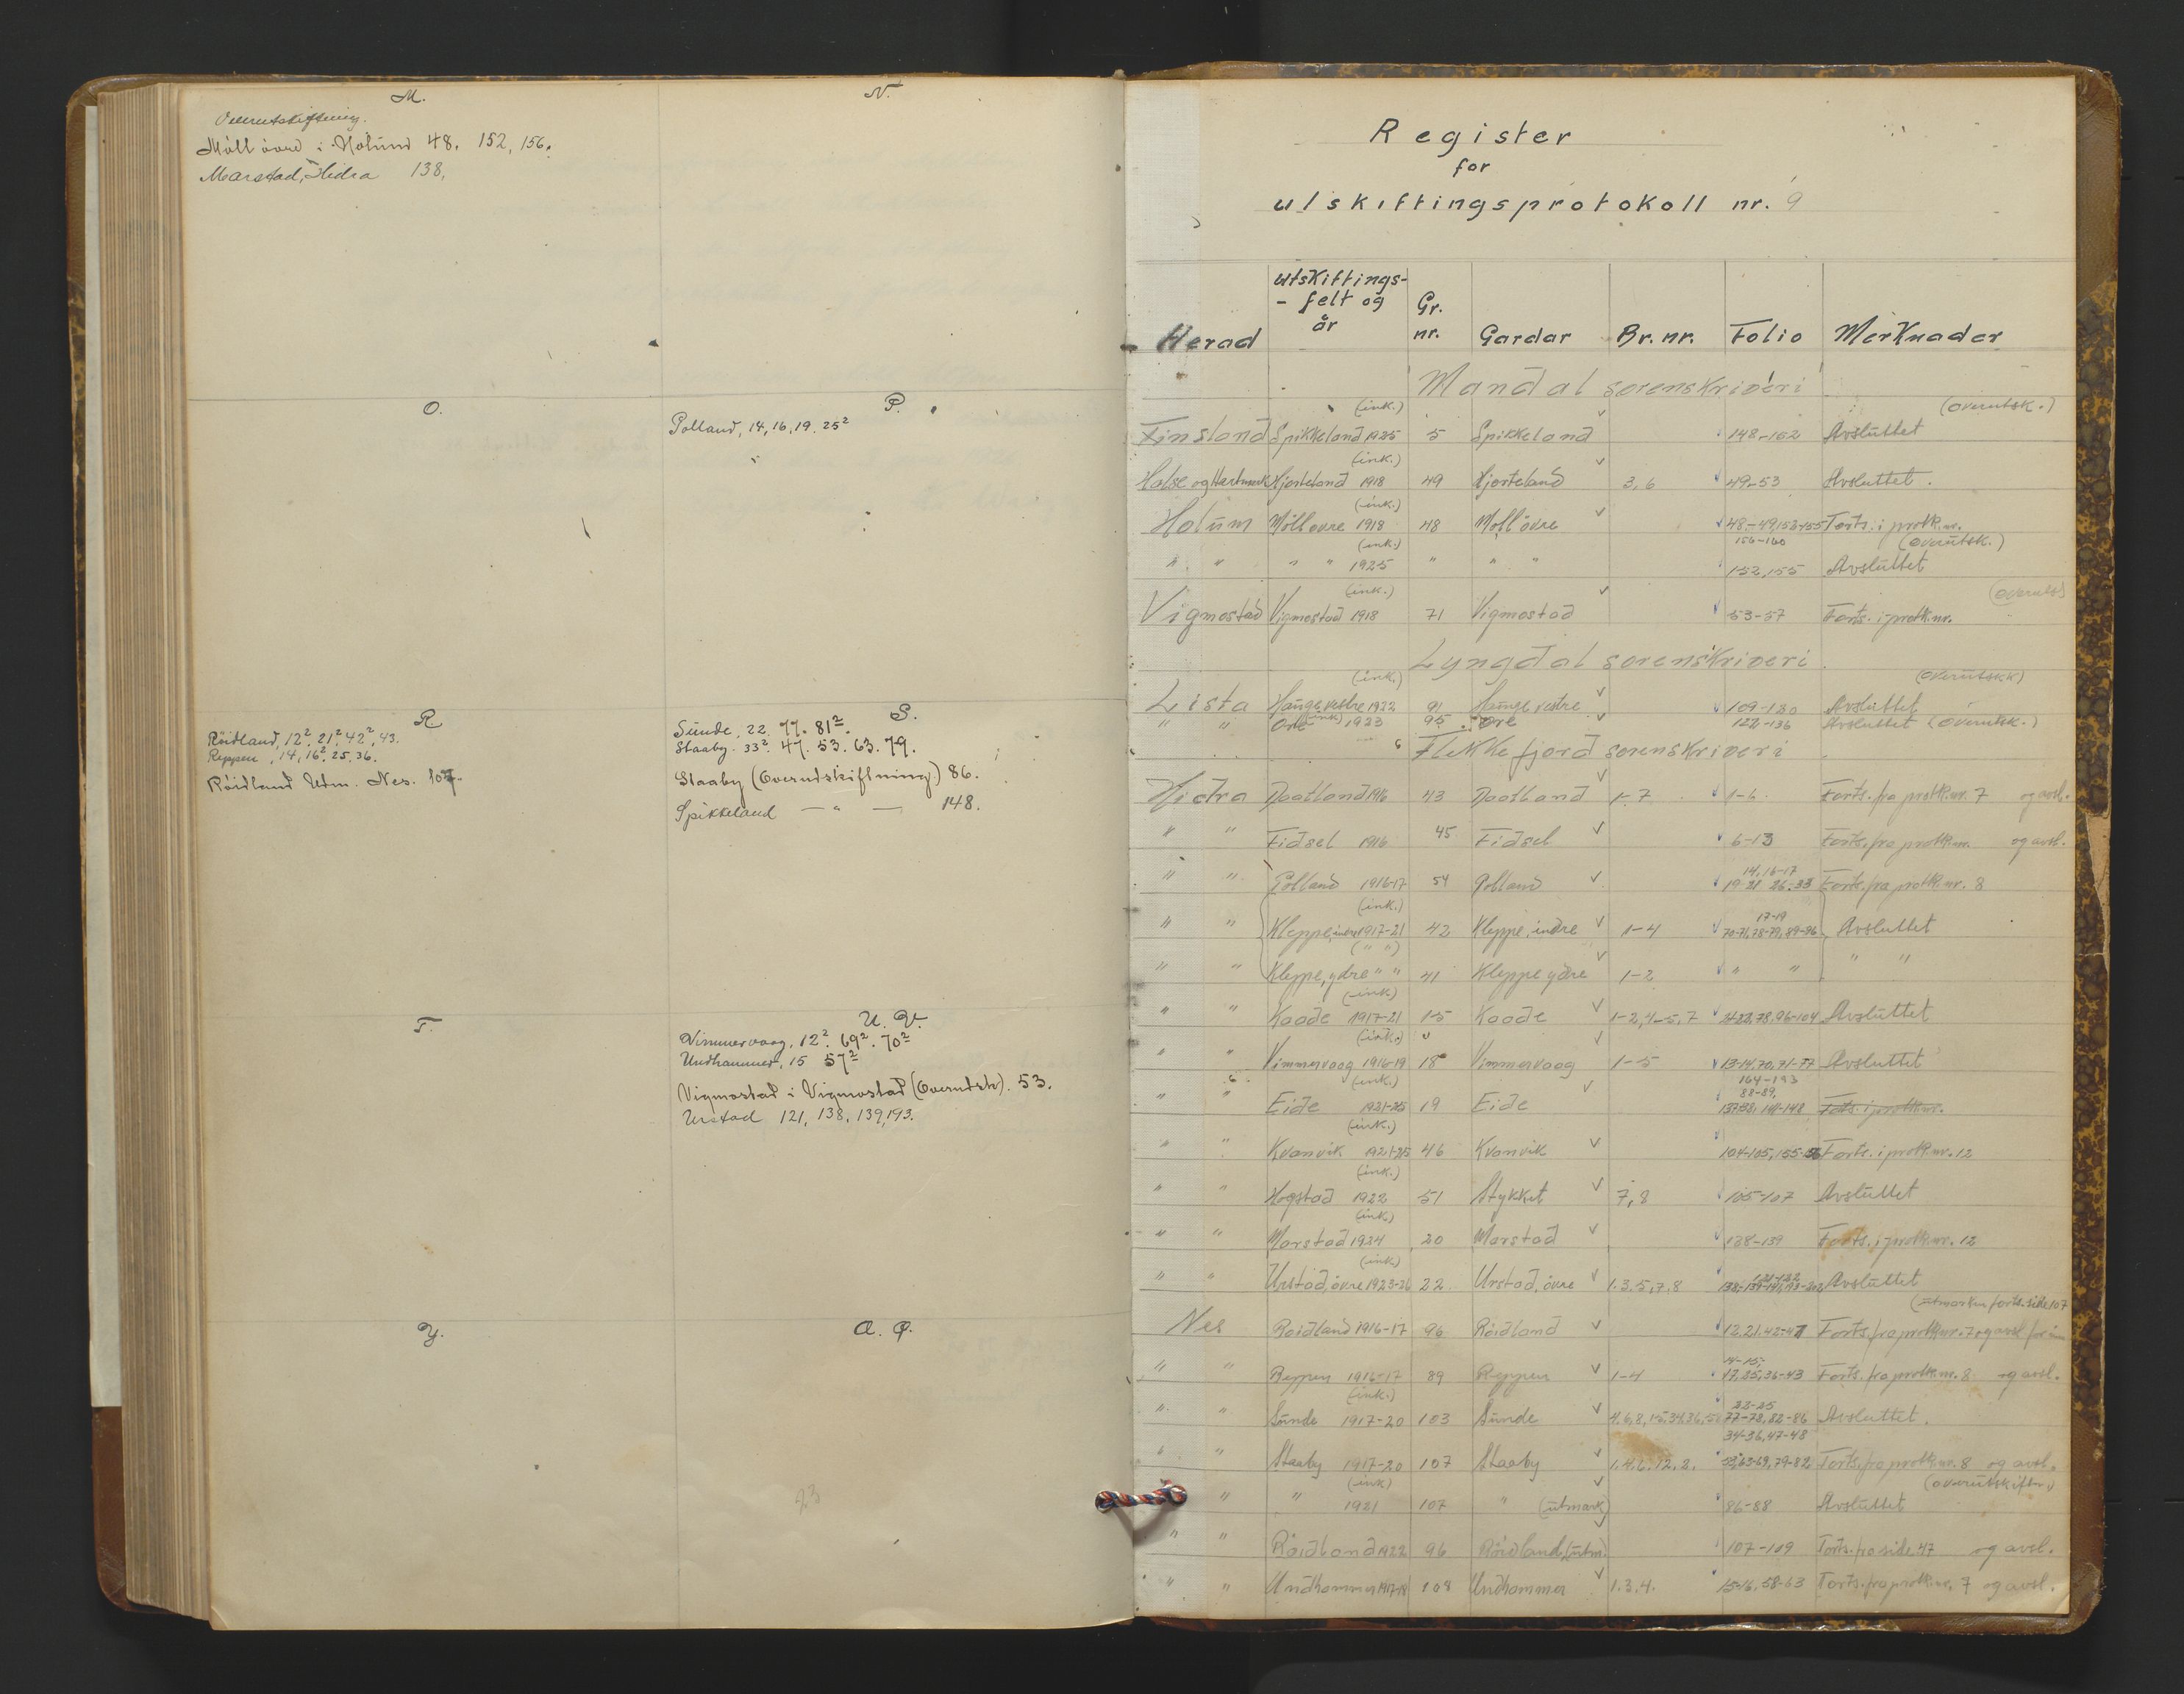 M.
Overutskiftning.
Möll övre i Holum 48. 152, 156.
Marstad, Hidra 138,
N.
O.
P.
Polland, 14, 16, 19. 25²
R
Röidland, 12². 21² 42², 43.
Reppen, 14, 16², 25, 36.
Röidland Utm. Nes. 107.
S.
Sunde, 22. 77. 81².
Staaby. 33². 47. 53. 63. 79.
Staaby (Overudskiftning.) 86.
Spikkeland — " — 148.
T.
U. V.
Vimmervaag, 12². 69². 70²
Undhammer, 15 57²
Vigmostad i Vigmostad (Overudsk). 53.
Urstad 121, 138, 139, 193.
Y.
Æ. Ø.
23
Register
for
utskiftingsprotokoll nr. 9
Herad utskiftings- - felt og år Gr. nr. Gardar Br. nr. Folio Merknader
Mandal sorenskriveri
(ink.) (overutsk.)
Finsland Spikkeland 1925 5 Spikkeland 148-152 Avsluttet
(ink.)
Halse og Harkmark Hjorteland 1918 49 Hjorteland 3, 6 49-53 Avsluttet.
(ink.)
Holum Möll övre 1918 48 Möll övre 48-49, 153-155 Forts. i protk. nr.
(ink.) 156-160 (overutsk.)
" " " " 1925 " " " 152, 155 Avsluttet
(ink.) (overuts)
Vigmostad Vigmostad 1918 71 Vigmostad 53-57 Forts. i protk. nr.
Lyngdal sorenskriveri
(ink.) (overutskk)
Lista Hauge vestre 1922 91 Hauge vestre 109-120 Avsluttet
" " Ore (ink) 1923 95 Ore 122-136 Avsluttet (overutsk.)
Flekkefjord sorenskriveri
Hidra Daatland 1916 43 Daatland 1-7 1-6. Forts. fra protk. nr. 7 og avsl.
" " Fidsel 1916 45 Fidsel 6-13 Forts. fra protk. nr. og avsl.
14, 16-17
" " Polland 1916-17 54 Polland 19-21 26-33 Forts. fra protk. nr. 8
(ink.) 17-19
" " Kleppe, indre 1917-21 42 Kleppe, indre 1-4 70-71, 78-79, 89-96 Avsluttet
(" ")
" " Kleppe, ydre " " 41 Kleppe ydre 1-2 " " " "
(ink.)
" " Kaade 1917-21 15 Kaade 1-2, 4-5, 7 21-22, 78, 96-104 Avsluttet
(ink.)
" " Vimmervaag 1916-19 18 Vimmervaag 1-5 13-14, 70, 71-77 Avsluttet
(ink.) 164-193
88-89,
" " Eide 1921-25 19 Eide 137-38, 141-148 Forts. i protk. nr.
(ink.)
" " Kvanvik 1921-25 46 Kvanvik 104-105, 155-156 Forts. i protk. nr. 12
(ink.)
" " Hogstad 1922 51 Stykket 7, 8 105-107 Avsluttet
(ink)
" " Marstad 1924 20 Marstad 138-139 Forts. i protk. nr. 12
(ink) 121-122
" " Urstad, övre 1923-26 22. Urstad, övre 1. 3. 5, 7, 8 138-139-141, 193-202 Avsluttet
(utmarken forts. side 107
Nes Röidland 1916-17 96 Röidland 12. 21. 42-47 Forts. fra protk. nr. 7 og avsl. for inn
14-15,
" " Reppen 1916-17 89 Reppen 1-4 17, 25, 36-43 Forts. fra protk. nr. 8 og avsl.
(ink.) 22-25
" " Sunde 1917-20 103 Sunde 4, 6, 8, 15, 34, 36, 5 77-78, 82-86 Avsluttet.
34-36, 47-48
" " Staaby 1917-20 107 Staaby 1. 4. 6. 12. 2. 53, 63-69, 79-82 Forts. fra protk. nr. 8 og avsl.
(ink) (overutskiftn.)
" " " 1921 107 " (utmark) 86-88 Avsluttet
" " Röidland 1922 96 Röidland, (utm.) 107-109 Forts. fra side 47 og avsl.
" " Undhammer 1917-19 108 Undhammer 1. 3. 4. 15-16, 58-63 Forts. fra protk. nr. 7 og avsl.